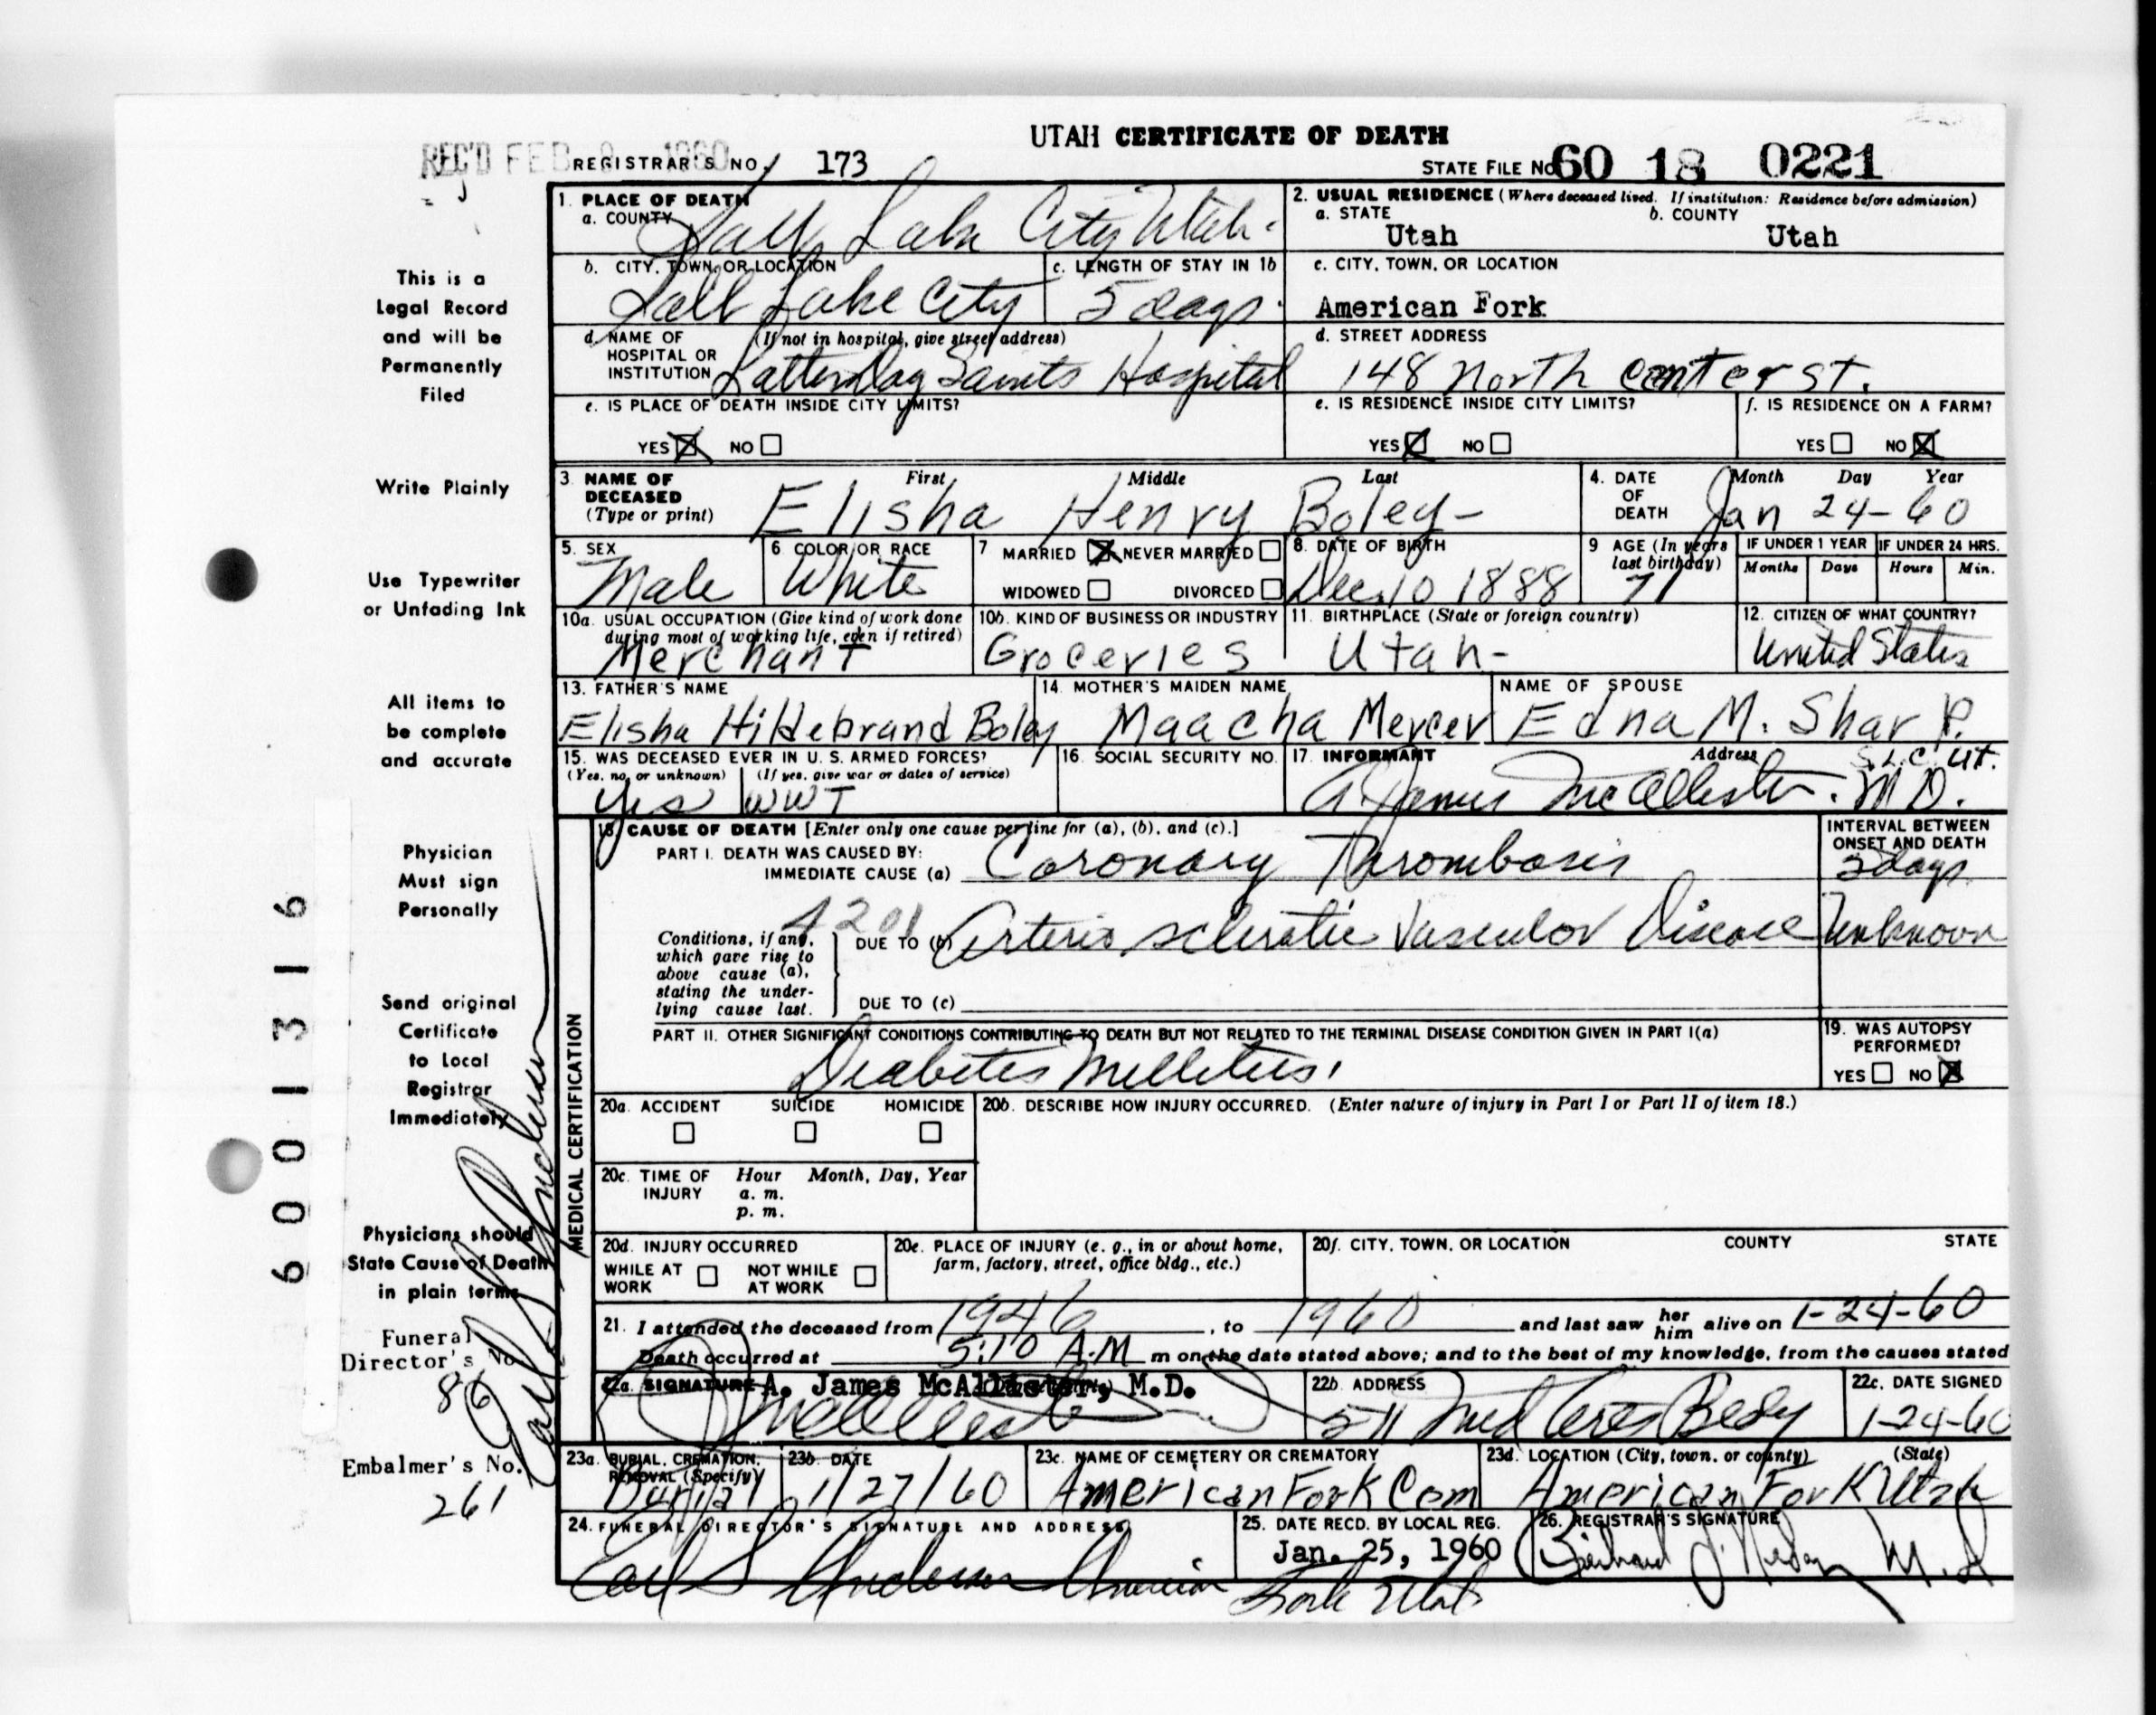 UTAH CERTIFICATE OF DEATH
REC'D FEB 1960 REGISTRAR'S NO. 173 STATE FILE NO. 60 18 0221
This is a
Legal Record
and will be
Permanently
Filed
Write Plainly
Use Typewriter
or Unfading Ink
All items to
be complete
and accurate
Physician
Must sign
Personally
Send original
Certificate
to Local
Registrar
Immediately
Physicians should
State Cause of Death
in plain terms
Funeral
Director's No.
86
Embalmer's No.
261
Earl S Anderson
6001316
1. PLACE OF DEATH
a. COUNTY
Salt Lake City Utah.
2. USUAL RESIDENCE (Where deceased lived. If institution: Residence before admission)
a. STATE b. COUNTY
Utah Utah
b. CITY, TOWN, OR LOCATION
Salt Lake City
c. LENGTH OF STAY IN 1b
5 days.
c. CITY, TOWN, OR LOCATION
American Fork
d. NAME OF (If not in hospital, give street address)
HOSPITAL OR
INSTITUTION Latter Day Saints Hospital
d. STREET ADDRESS
148 North Center St.
e. IS PLACE OF DEATH INSIDE CITY LIMITS?
YES ☒ NO ☐
e. IS RESIDENCE INSIDE CITY LIMITS?
YES ☒ NO ☐
f. IS RESIDENCE ON A FARM?
YES ☐ NO ☒
3. NAME OF First Middle Last
DECEASED
(Type or print) Elisha Henry Boley-
4. DATE Month Day Year
OF
DEATH Jan 24-60
5. SEX
Male
6. COLOR OR RACE
White
7 MARRIED ☒ NEVER MARRIED ☐
WIDOWED ☐ DIVORCED ☐
8. DATE OF BIRTH
Dec. 10 1888
9 AGE (In years
last birthday)
71
IF UNDER 1 YEAR IF UNDER 24 HRS.
Months Days Hours Min.
10a. USUAL OCCUPATION (Give kind of work done
during most of working life, even if retired)
Merchant
10b. KIND OF BUSINESS OR INDUSTRY
Groceries
11. BIRTHPLACE (State or foreign country)
Utah-
12. CITIZEN OF WHAT COUNTRY?
United States
13. FATHER'S NAME
Elisha Hildebrand Boley
14. MOTHER'S MAIDEN NAME
Maacha Mercer
NAME OF SPOUSE
Edna M. Sharp.
15. WAS DECEASED EVER IN U. S. ARMED FORCES?
(Yes, no, or unknown) (If yes, give war or dates of service)
Yes WWI
16. SOCIAL SECURITY NO.
17. INFORMANT Address S.L.C. Ut.
A. James McAllister. M.D.
MEDICAL CERTIFICATION
18. CAUSE OF DEATH [Enter only one cause per line for (a), (b), and (c).]
PART I. DEATH WAS CAUSED BY:
IMMEDIATE CAUSE (a) Coronary Thrombosis
INTERVAL BETWEEN
ONSET AND DEATH
5 days
4201
Conditions, if any,
which gave rise to
above cause (a),
stating the under-
lying cause last.
DUE TO (b) Arterio sclerotic Vascular Disease Unknown
DUE TO (c)
PART II. OTHER SIGNIFICANT CONDITIONS CONTRIBUTING TO DEATH BUT NOT RELATED TO THE TERMINAL DISEASE CONDITION GIVEN IN PART I(a)
Diabetes Mellitus.
19. WAS AUTOPSY
PERFORMED?
YES ☐ NO ☒
20a. ACCIDENT SUICIDE HOMICIDE
☐ ☐ ☐
20b. DESCRIBE HOW INJURY OCCURRED. (Enter nature of injury in Part I or Part II of item 18.)
20c. TIME OF Hour Month, Day, Year
INJURY a. m.
p. m.
20d. INJURY OCCURRED
WHILE AT ☐ NOT WHILE ☐
WORK AT WORK
20e. PLACE OF INJURY (e. g., in or about home,
farm, factory, street, office bldg., etc.)
20f. CITY, TOWN, OR LOCATION COUNTY STATE
21. I attended the deceased from 1946, to 1960 and last saw her him alive on 1-24-60
Death occurred at 5:10 A.M m on the date stated above; and to the best of my knowledge, from the causes stated
22a. SIGNATURE A. James McAllister, M.D.
22b. ADDRESS
511 Med
22c. DATE SIGNED
1-24-60
23a. BURIAL, CREMATION,
REMOVAL (Specify)
Burial
23b. DATE
1/27/60
23c. NAME OF CEMETERY OR CREMATORY
American Fork Cem
23d. LOCATION (City, town, or county) (State)
American Fork Utah
24. FUNERAL DIRECTOR'S SIGNATURE AND ADDRESS
Earl S Anderson American Fork Utah
25. DATE RECD. BY LOCAL REG.
Jan. 25, 1960
26. REGISTRAR'S SIGNATURE
M.D.